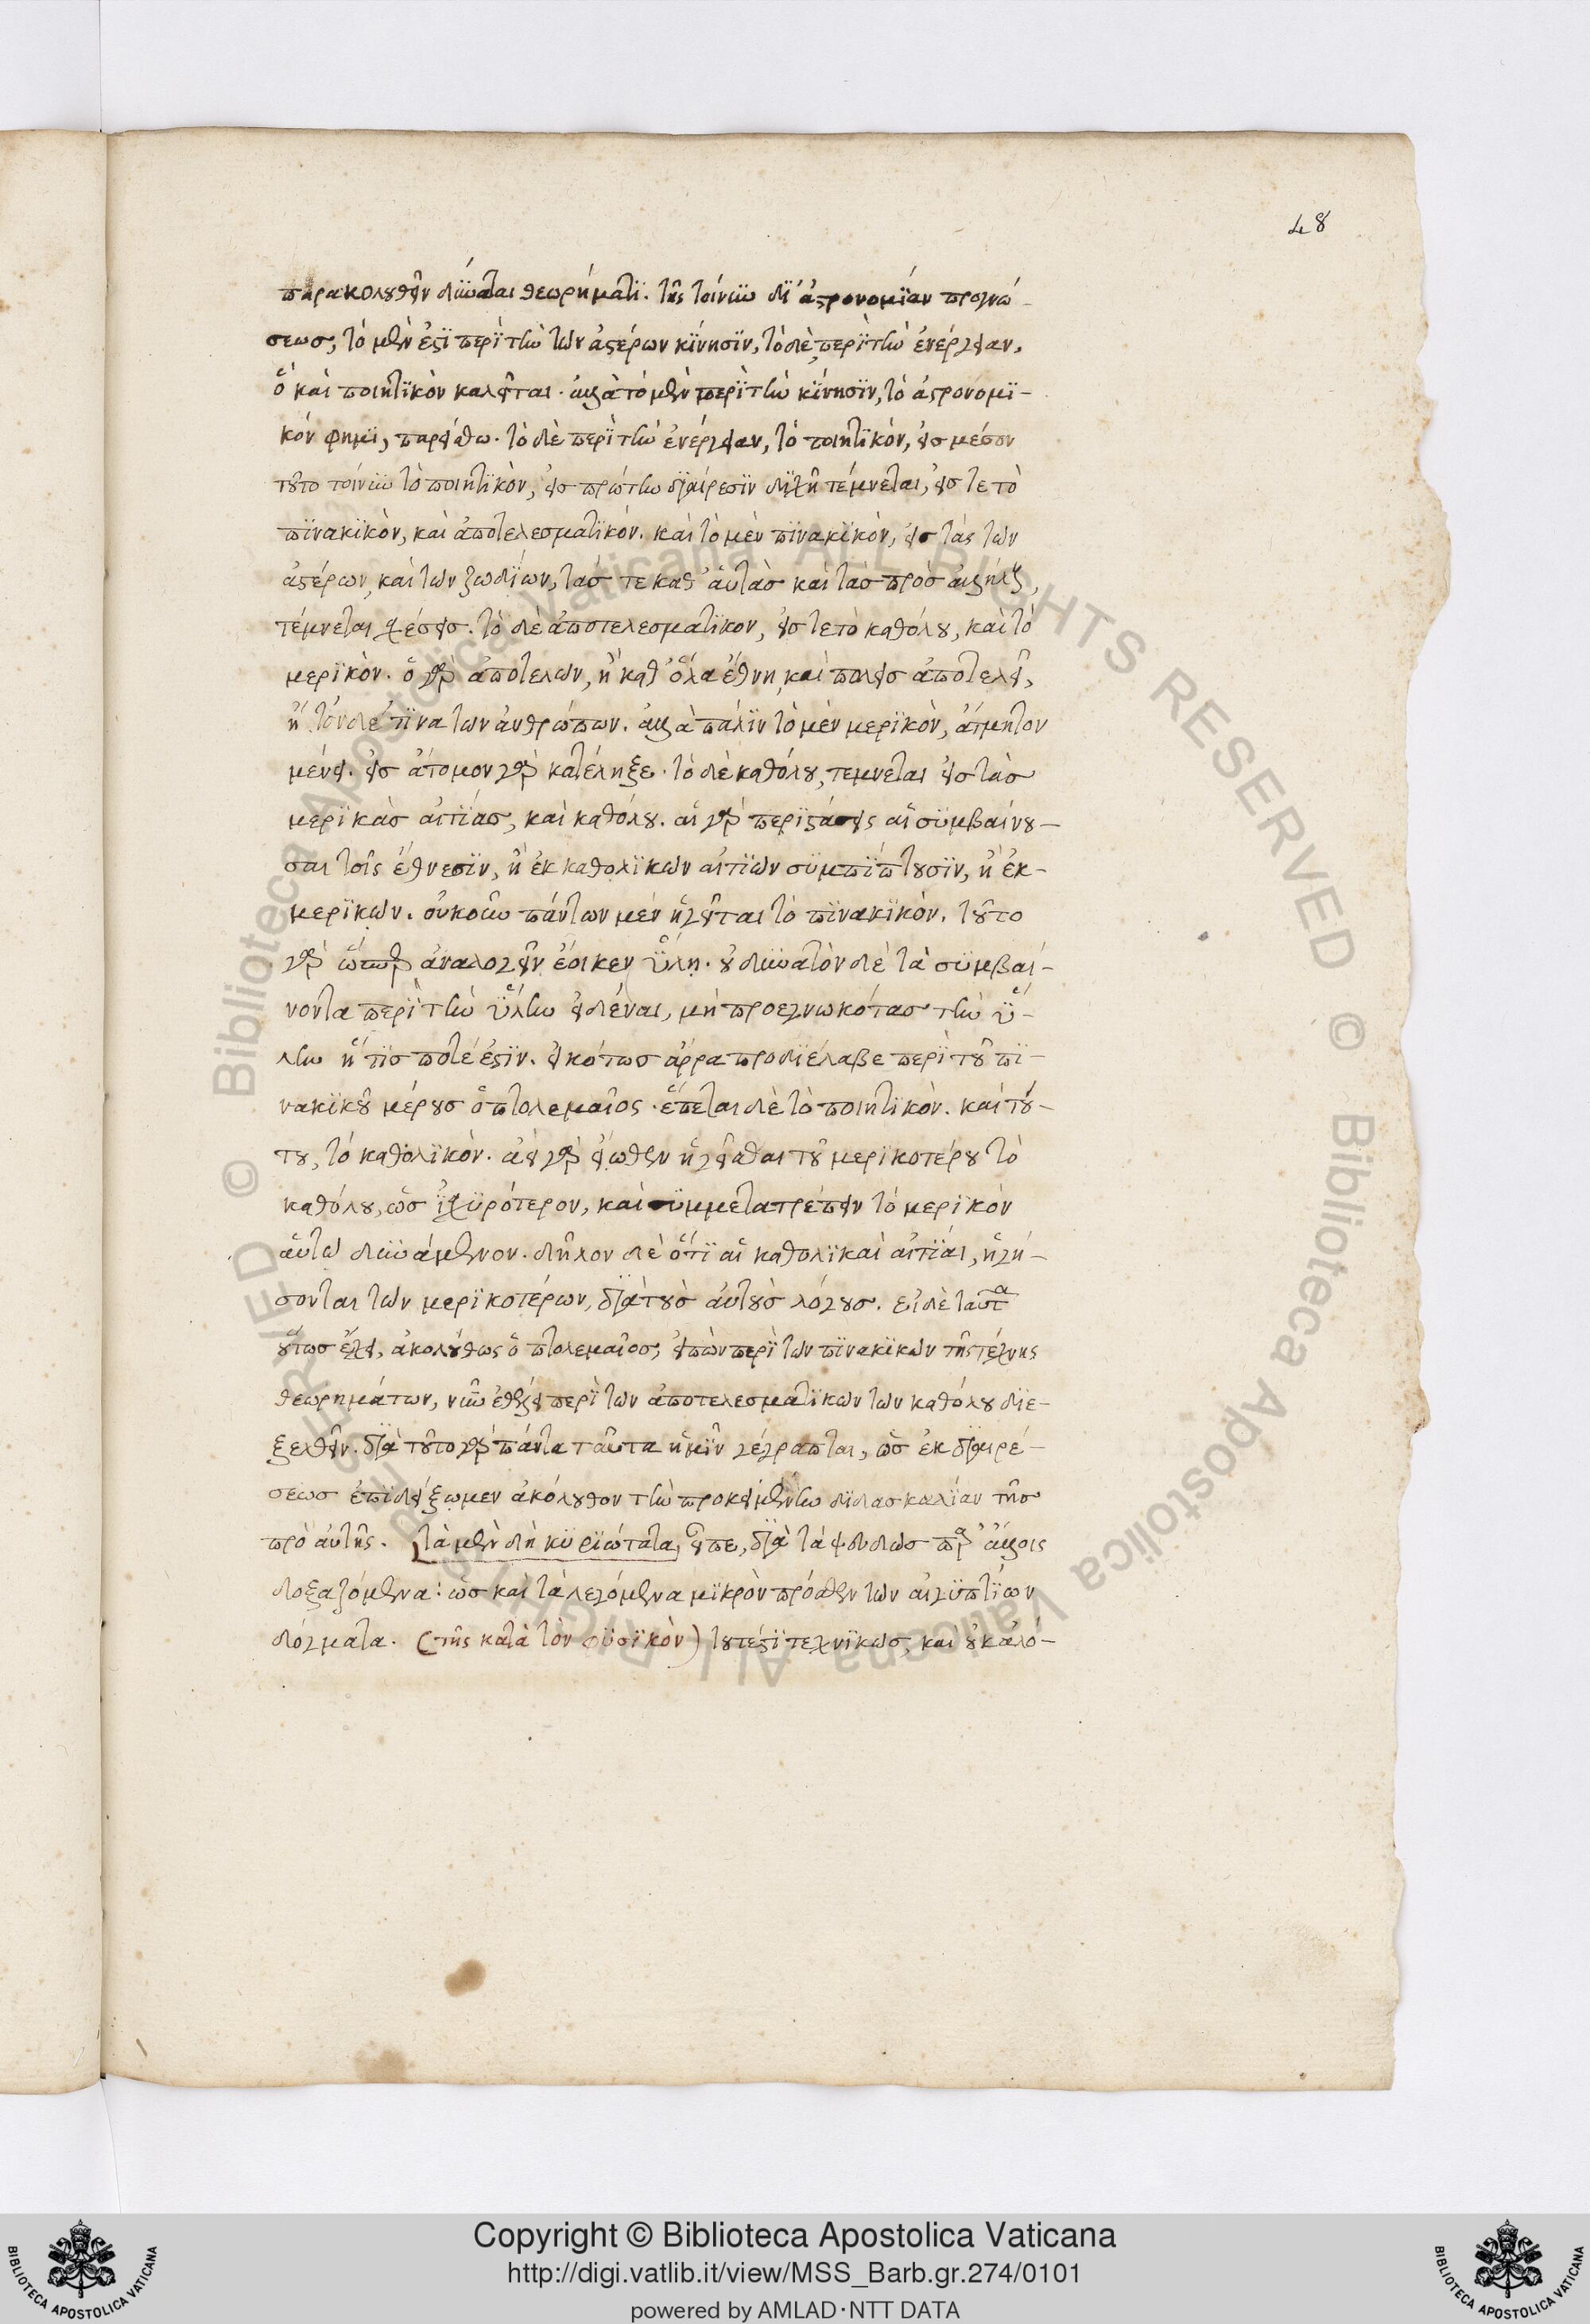 48
παρακολουθεῖν δύναται θεωρήματϊ. τῆς τοίνυν δϊ' ἀστρονομΐαν προγνώ-
σεωσ, τὸ μὲν ἐστϊ περὶ τὴν τῶν ἀστέρων κΐνησϊν, τὸ δὲ περὶ τὴν ἐνέργειαν,
ὃ καὶ ποιητϊκὸν καλεῖται. ἀλλὰ τὸ μὲν περὶ τὴν κΐνησϊν, τὸ ἀστρονομϊ-
κόν φημϊ, παρείσθω. τὸ δὲ περὶ τὴν ἐνέργειαν, τὸ ποιητϊκὸν, εἰσ μέσον
τοῦτο τοίνυν τὸ ποιητϊκὸν, εἰσ πρώτην δϊαίρεσϊν δϊχῆ τέμνεται, εἰσ τε τὸ
πϊνακϊκὸν, καὶ ἀποτελεσματϊκόν. καὶ τὸ μὲν πϊνακϊκὸν, εἰσ τὰς τῶν
ἀστέρων, καὶ τῶν ζωδΐων, τάσ τε καθ' αὑτὰσ καὶ τὰσ πρὸσ ἀλλήλους,
τέμνεται σχέσεισ. τὸ δὲ ἀποτελεσματϊκον, εἰσ τε τὸ καθόλου, καὶ τὸ
μερϊκὸν. ὁ γὰρ ἀποτελῶν, ἢ καθ' ὅλα ἔθνη, καὶ πολεισ ἀποτελεῖ,
ἢ τόνδε τϊνα τῶν ἀνθρώπων. ἀλλὰ πάλϊν τὸ μὲν μερϊκὸν, ἄτμητον
μένει. εἰσ ἄτομον γὰρ κατέληξε. τὸ δὲ καθόλου, τεμνεται εἰσ τὰσ
μερϊκὰσ αἰτΐασ, καὶ καθόλου. αἱ γὰρ περϊστάσεις αἳ συμβαίνου-
σαι τοῖς ἔθνεσϊν, ἢ ἐκ καθολϊκῶν αἰτϊῶν συμπΐπτουσϊν, ἢ ἐκ-
μερϊκῶν. οὐκοῦν πάντων μὲν ἡγεῖται τὸ πϊνακϊκὸν. τοῦτο
γὰρ ὥσπερ ἀναλογεῖν ἔοικεν ὕλη. οὐ δυνατὸν δὲ τὰ συμβαί-
νοντα περὶ τὴν ὕλην εἰδέναι, μὴ προεγνωκότασ τὴν ὕ-
λην ἥ τϊσ ποτέ ἐστϊν. εἰκότωσ ἄρρα προδϊέλαβε περὶ τοῦ πϊ-
νακϊκοῦ μέρουσ ὁ πτολεμαῖος. ἕπεται δὲ τὸ ποιητϊκὸν. καὶ τού-
του, τὸ καθολϊκὸν. ἀεὶ γὰρ εἴωθεν ἡγεῖσθαι τοῦ μερϊκοτέρου τὸ
καθόλου, ὡσ ἰσχυρότερον, καὶ συμμετατρέπειν τὸ μερϊκὸν
αὑτῷ δυνάμενον. δῆλον δὲ ὅτϊ αἱ καθολϊκαὶ αἰτΐαι, ἡγή-
σονται τῶν μερϊκοτέρων, δϊὰ τοὺσ αὐτοὺσ λόγουσ. εἰ δὲ ταῦτα
οὕτωσ ἔχει, ἀκολούθως ὁ πτολεμαῖοσ, εἰπὼν περὶ τῶν πϊνακϊκῶν τῆς τέχνης
θεωρημάτων, νῦν ἐθέλει περὶ τῶν ἀποτελεσματϊκῶν τῶν καθόλου δϊε-
ξελθεῖν. δϊὰ τοῦτο γὰρ πάντα ταῦτα ἡμῖν γέγραπται, ὡσ ἐκ δϊαιρέ-
σεωσ ἐπϊδείξωμεν ἀκόλουθον τὴν προκειμένην δϊδασκαλίαν τῆσ
πρὸ αὐτῆς. τὰ μὲν δὴ κυρϊώτατα, εἶπε, δϊὰ τὰ ψευδῶσ παρ' ἄλλοις
δοξαζόμενα: ὡσ καὶ τὰ λεγόμενα μϊκρὸν πρόσθεν τῶν αἰγυπτΐων
δόγματα. (τῆς κατὰ τὸν φυσϊκὸν) τουτέστϊ τεχνϊκωσ, καὶ οὐκ ἀλό-
Copyright © Biblioteca Apostolica Vaticana
http://digi.vatlib.it/view/MSS_Barb.gr.274/0101
powered by AMLAD·NTT DATA
BIBLIOTECA APOSTOLICA VATICANA
BIBLIOTECA APOSTOLICA VATICANA
© Biblioteca Apostolica Vaticana ALL RIGHTS RESERVED © Biblioteca Apostolica Vaticana ALL RIGHTS RESERVED